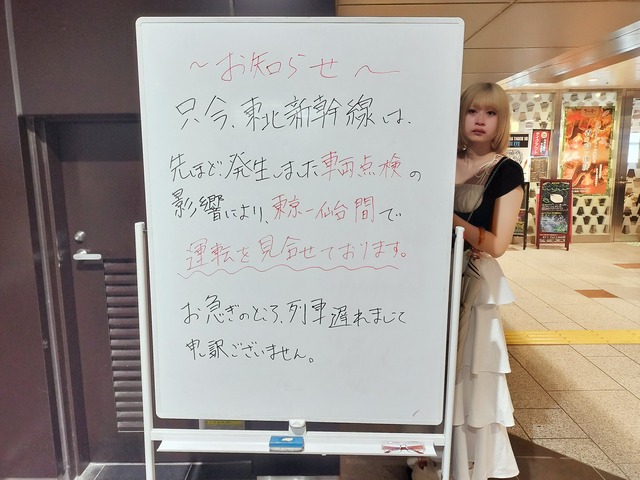 ～お知らせ～
只今、東北新幹線は、
先ほど、発生しました車両点検の
影響により、東京－仙台間で
運転を見合せております。
お急ぎのところ、列車遅れまして
申し訳ございません。